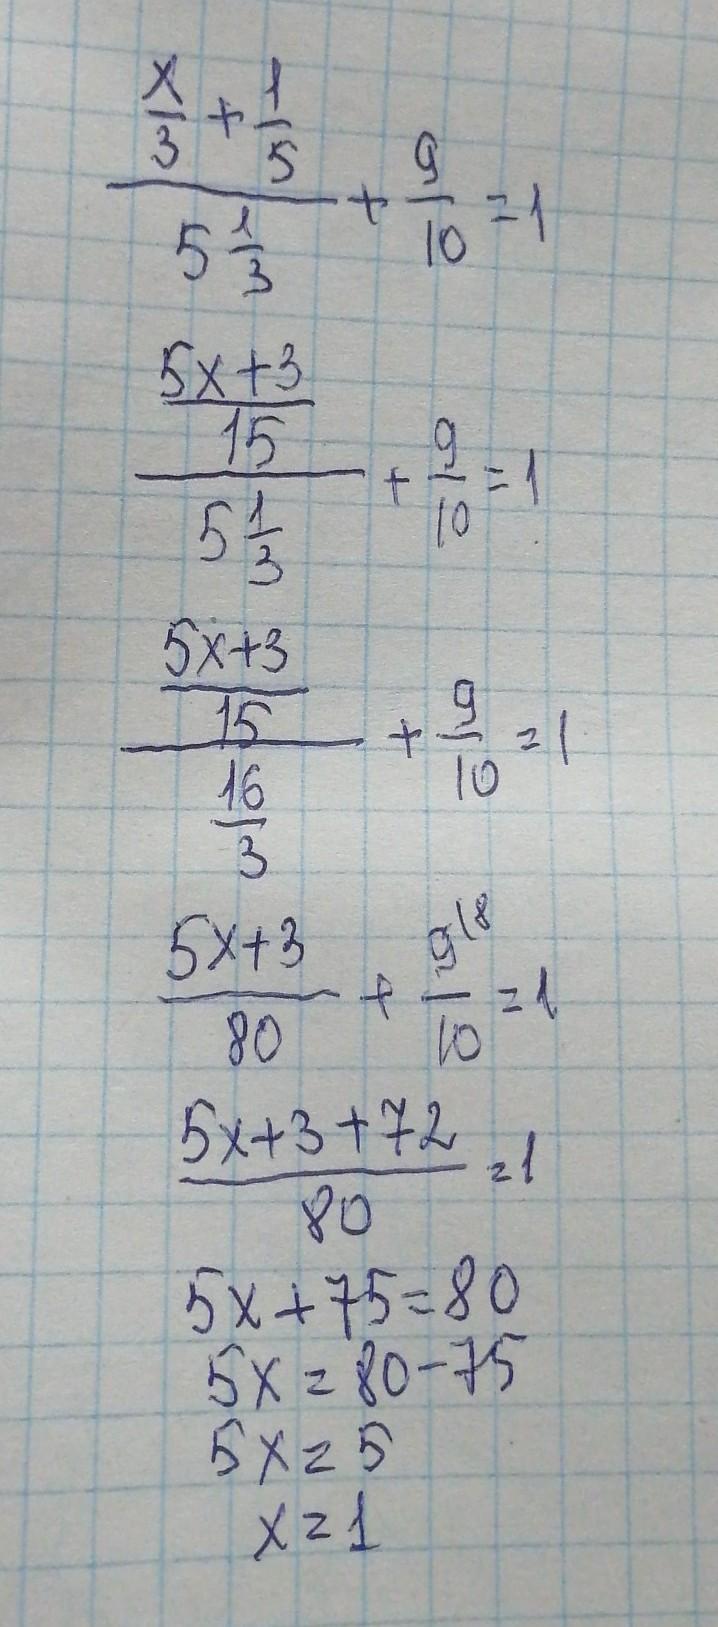 (x/3 + 1/5)/(5 1/3) + 9/10 = 1
((5x+3)/15)/(5 1/3) + 9/10 = 1
((5x+3)/15)/(16/3) + 9/10 = 1
(5x+3)/80 + 9\8/10 = 1
(5x+3+72)/80 = 1
5x+75=80
5x=80-75
5x=5
x=1